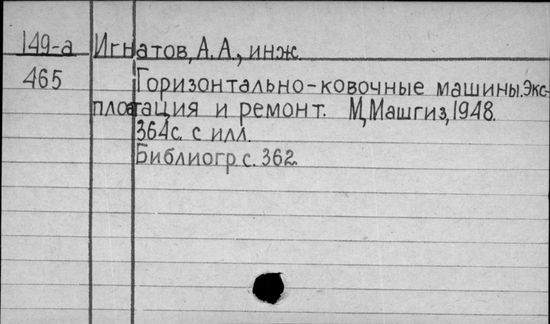 149-а Игнатов, А.А., инж.
465 Горизонтально-ковочные машины. Экс-
плоатация и ремонт. М, Машгиз, 1948.
364с. с илл.
Библиогр с. 362.